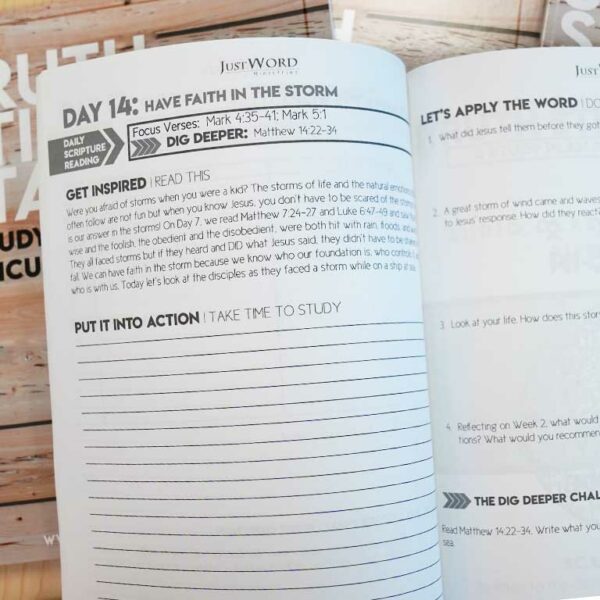 JUSTWORD
Ministries
DAY 14: HAVE FAITH IN THE STORM
DAILY
SCRIPTURE
READING
Focus Verses: Mark 4:35-41; Mark 5:1
DIG DEEPER: Matthew 14:22-34
GET INSPIRED | READ THIS
Were you afraid of storms when you were a kid? The storms of life and the natural
often follow are not fun but when you know Jesus, you don't have to be scared of the
is our answer in the storms! On Day 7, we read Matthew 7:24-27 and Luke 6:47-49 and
wise and the foolish, the obedient and the disobedient, were both hit with rain, floods, and
They all faced storms but if they heard and DID what Jesus said, they didn't have to be
fall. We can have faith in the storm because we know who our foundation is, who
who is with us. Today let's look at the disciples as they faced a storm while on a ship at
PUT IT INTO ACTION | TAKE TIME TO STUDY
JUST
LET'S APPLY THE WORD |
1. What did Jesus tell them before they
2. A great storm of wind came and
to Jesus' response. How did they
3. Look at your life. How does this
4. Reflecting on Week 2, what would
tions? What would you
THE DIG DEEPER
Read Matthew 14:22-34. Write what
sea.